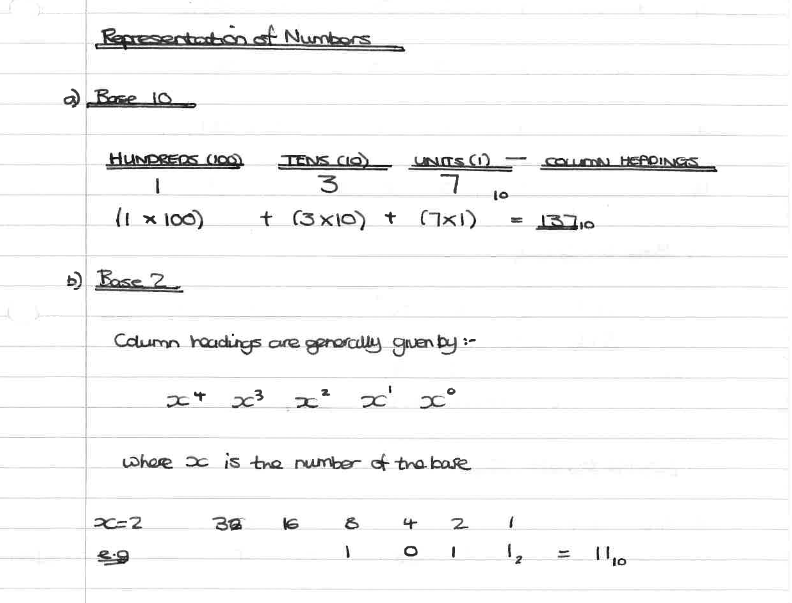 Representation of Numbers
a) Base 10
HUNDREDS (100) TENS (10) UNITS (1) — COLUMN HEADINGS
1 3 7 ₁₀
(1 × 100) + (3×10) + (7×1) = 137₁₀
b) Base 2
Column headings are generally given by :-
x⁴ x³ x² x¹ x⁰
where x is the number of the base
x=2 32 16 8 4 2 1
e.g 1 0 1 1₂ = 11₁₀